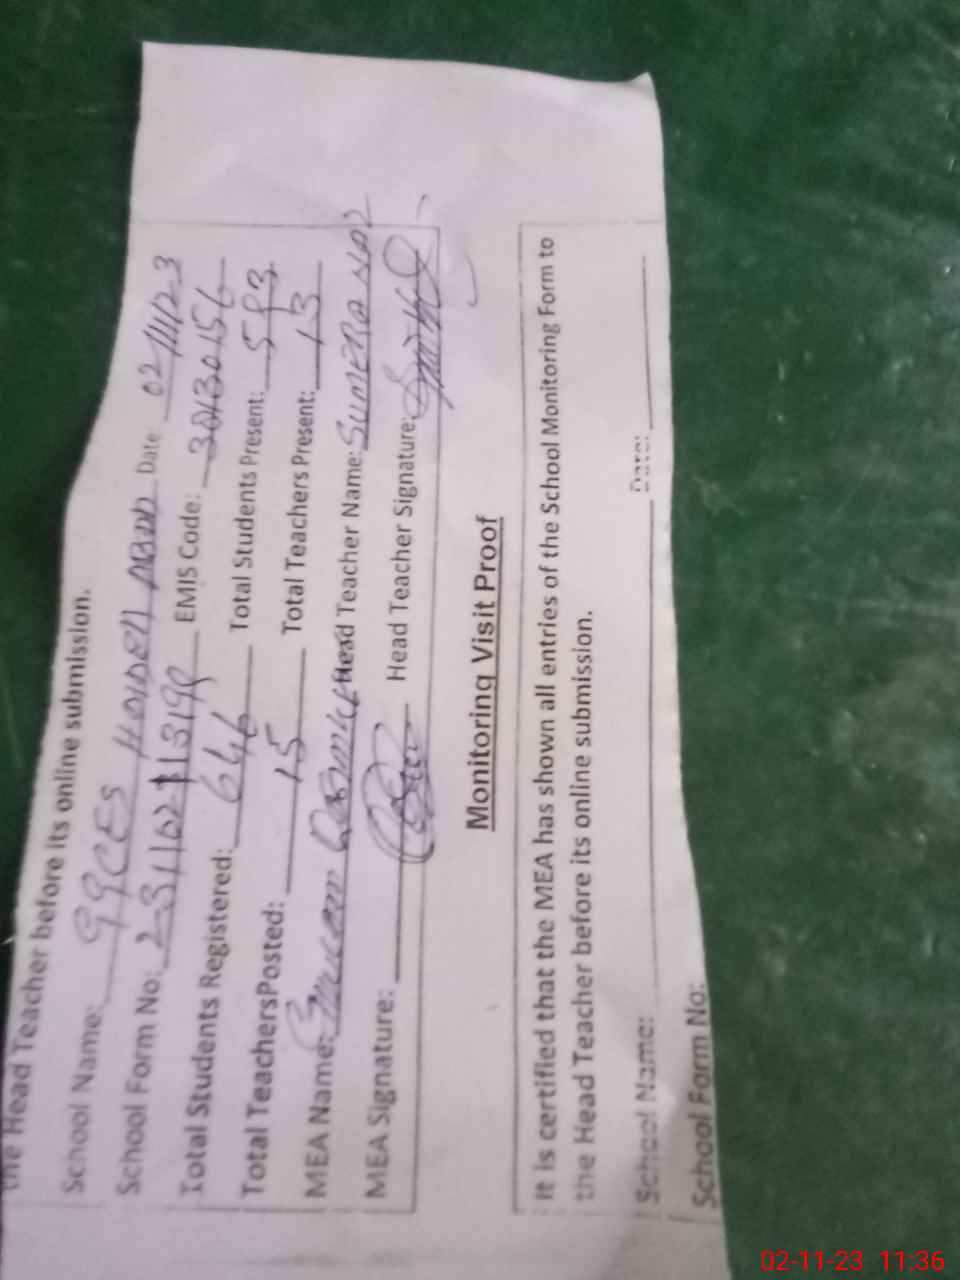 the Head Teacher before its online submission.
School Name: GGCES Date: 02/11/23
School Form No: EMIS Code: 30130156
Total Students Registered: 646 Total Students Present: 593
Total TeachersPosted: 15 Total Teachers Present: 13
MEA Name: Head Teacher Name: SUMERA NAZ
MEA Signature: Head Teacher Signature:
Monitoring Visit Proof
It is certified that the MEA has shown all entries of the School Monitoring Form to
the Head Teacher before its online submission.
School Name: Date:
School Form No:
02-11-23 11:36